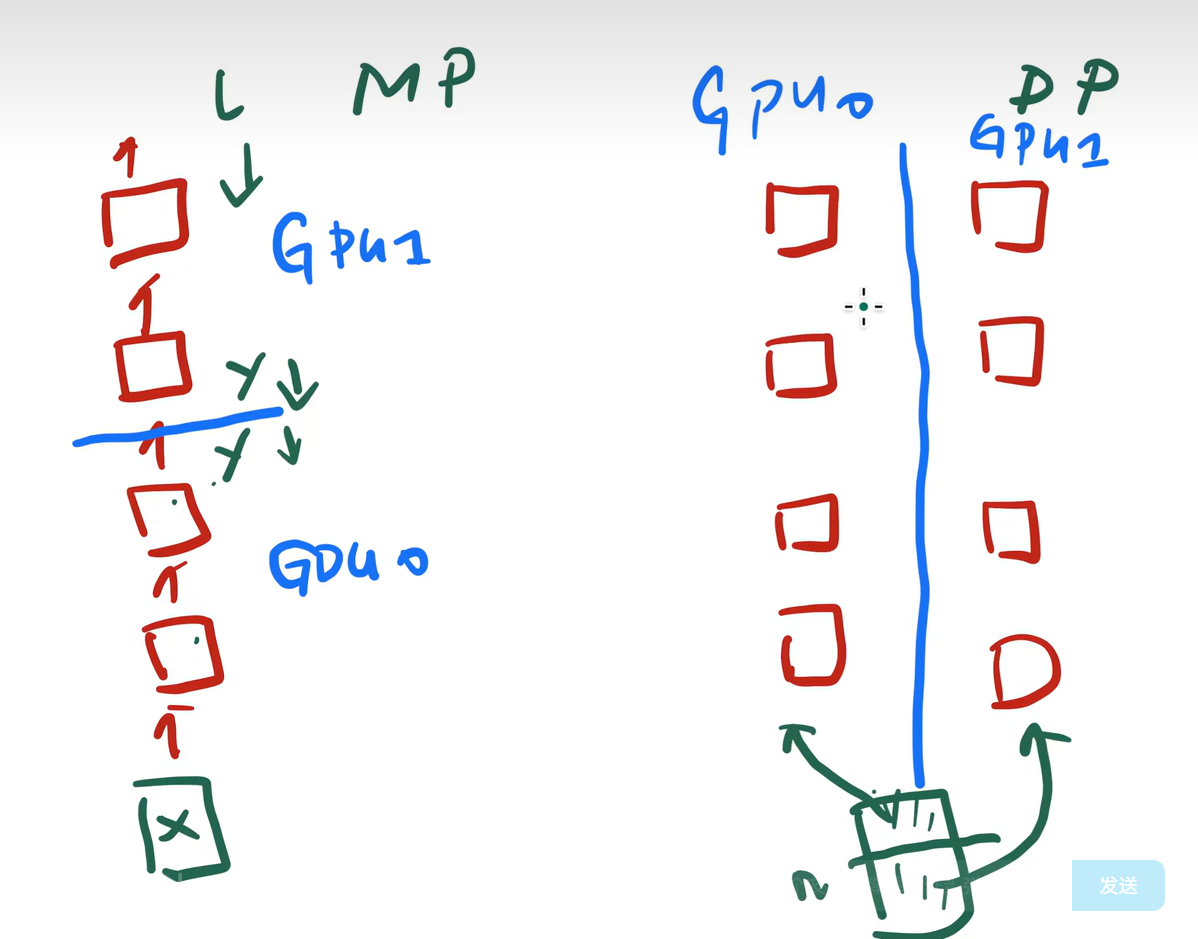 L MP
GPU1
Y
Y
GPU0
X
DP
GPU0 GPU1
n
发送